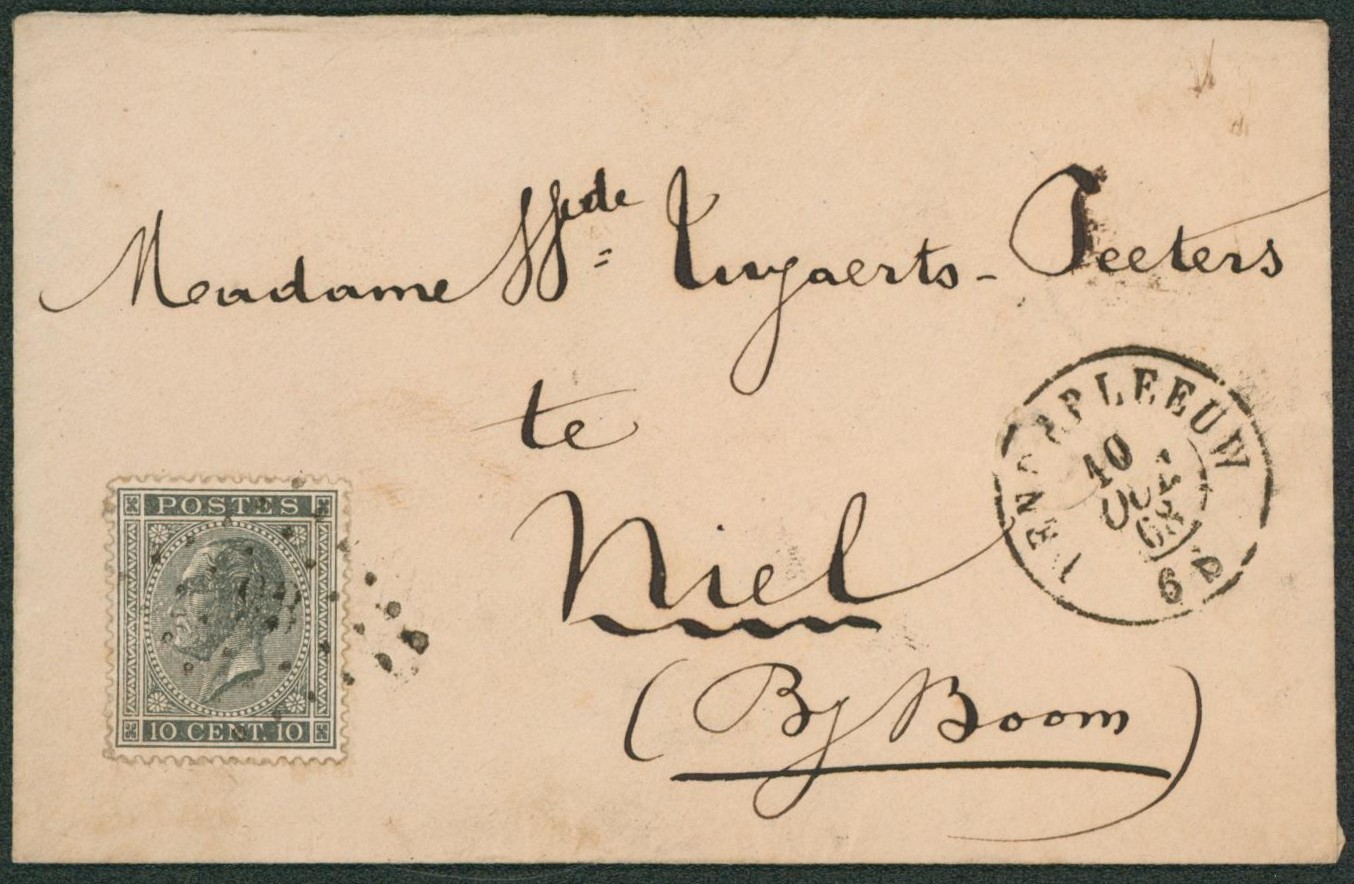 Madame Wde Tuyaerts - Peeters
te
Niel
(By Boom)
POSTES
10 CENT. 10
LEEUW
10 OCT 68
6